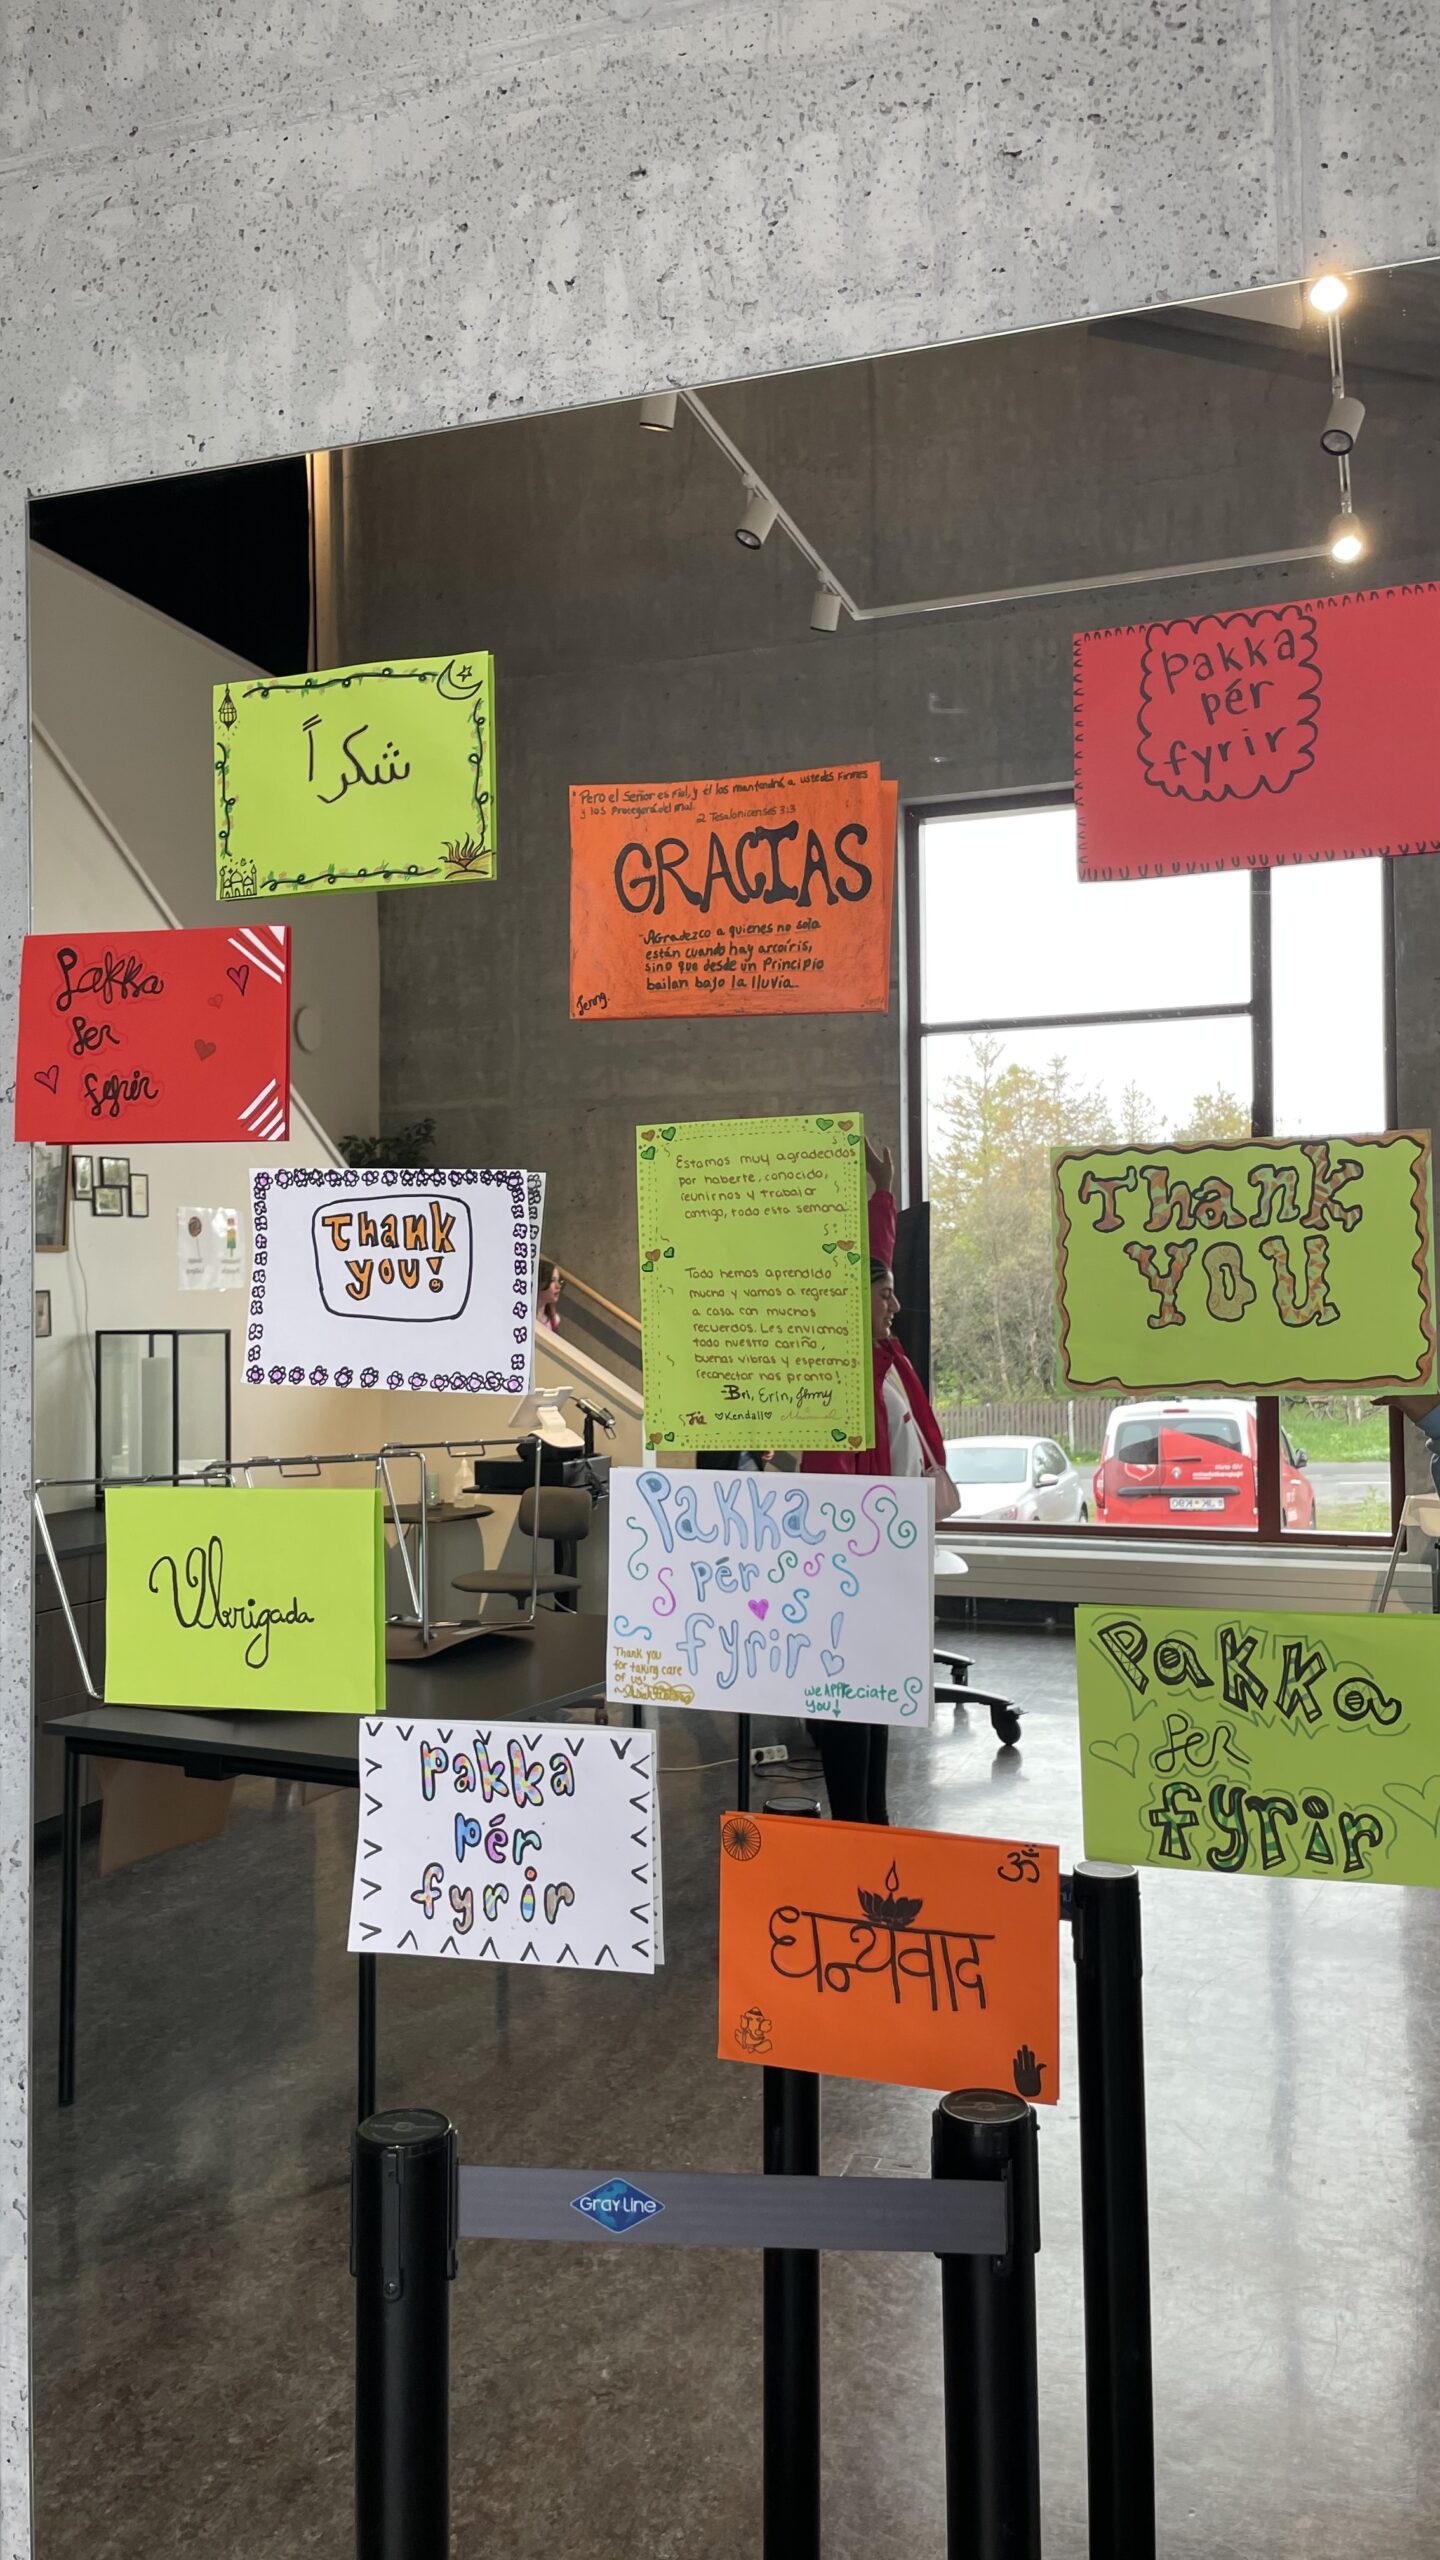 شكراً
Pakka
pér
fyrir
"Pero el Señor es fiel, y él los mantendrá a ustedes firmes
y los Protegerá del mal.
2 Tesalonicenses 3:3
GRACIAS
"Agradezco a quienes no solo
están cuando hay arcoíris,
sino que desde un Principio
bailan bajo la lluvia.
Jenny
Pakka
Þer
fyrir
Thank
you!
Estamos muy agradecidos
por haberte, conocido,
reunirnos y trabajar
contigo, todo esta semana
Todo hemos aprendido
mucho y vamos a regresar
a casa con muchos
recuerdos. Les enviamos
todo nuestro cariño,
buenas vibras y esperamos
reconectar nos pronto!
Bri, Erin, Jenny
Jia Kendall
Thank
YOU
Obrigada
Pakka
pér
fyrir!
Thank you
for taking care
of us!
we APPreciate
you!
Pakka
Þer
fyrir
Pakka
pér
fyrir
ॐ
धन्यवाद
GRAY LINE